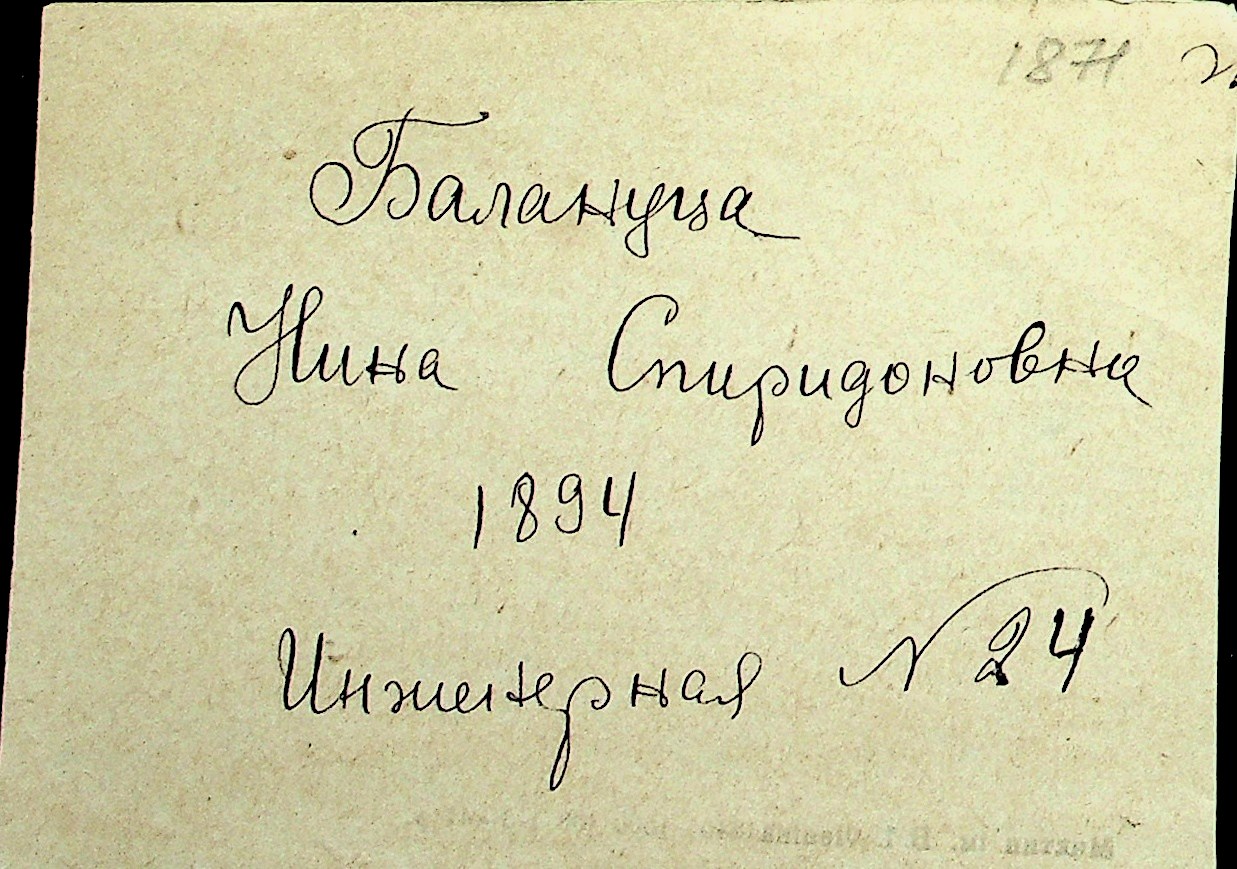 1871
Балануца
Нина Спиридоновна
1894
Инженерная N 24